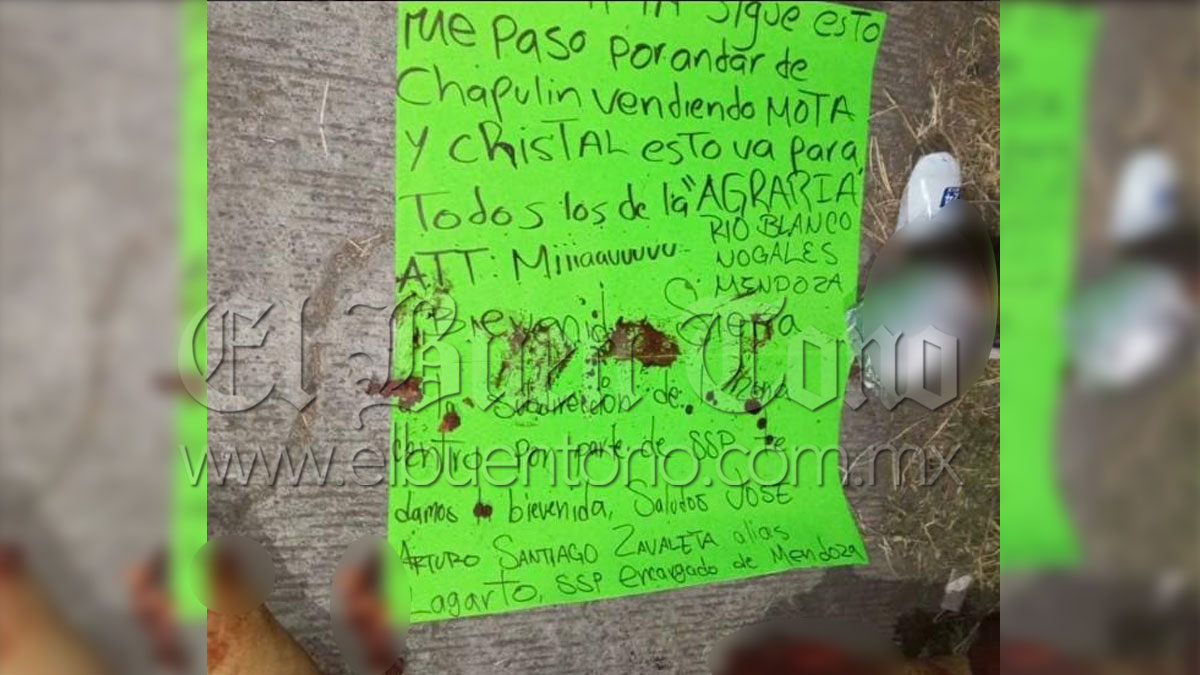 SIGUE ESTO
ME PASO POR ANDAR DE
Chapulin vendiendo MOTA
Y CRISTAL esto va para
Todos los de la "AGRARIA"
RIO BLANCO
NOGALES
MENDOZA
ATT: Miiiaauuuuu
Bievenid Sierra
El Buen Tono
Subdirecion de
centro Por parte de SSP te
www.elbuentono.com.mx
damos la bievenida, Saludos JOSE
ARTURO SANTIAGO ZAVALETA alias
Lagarto, SSP encargado de Mendoza